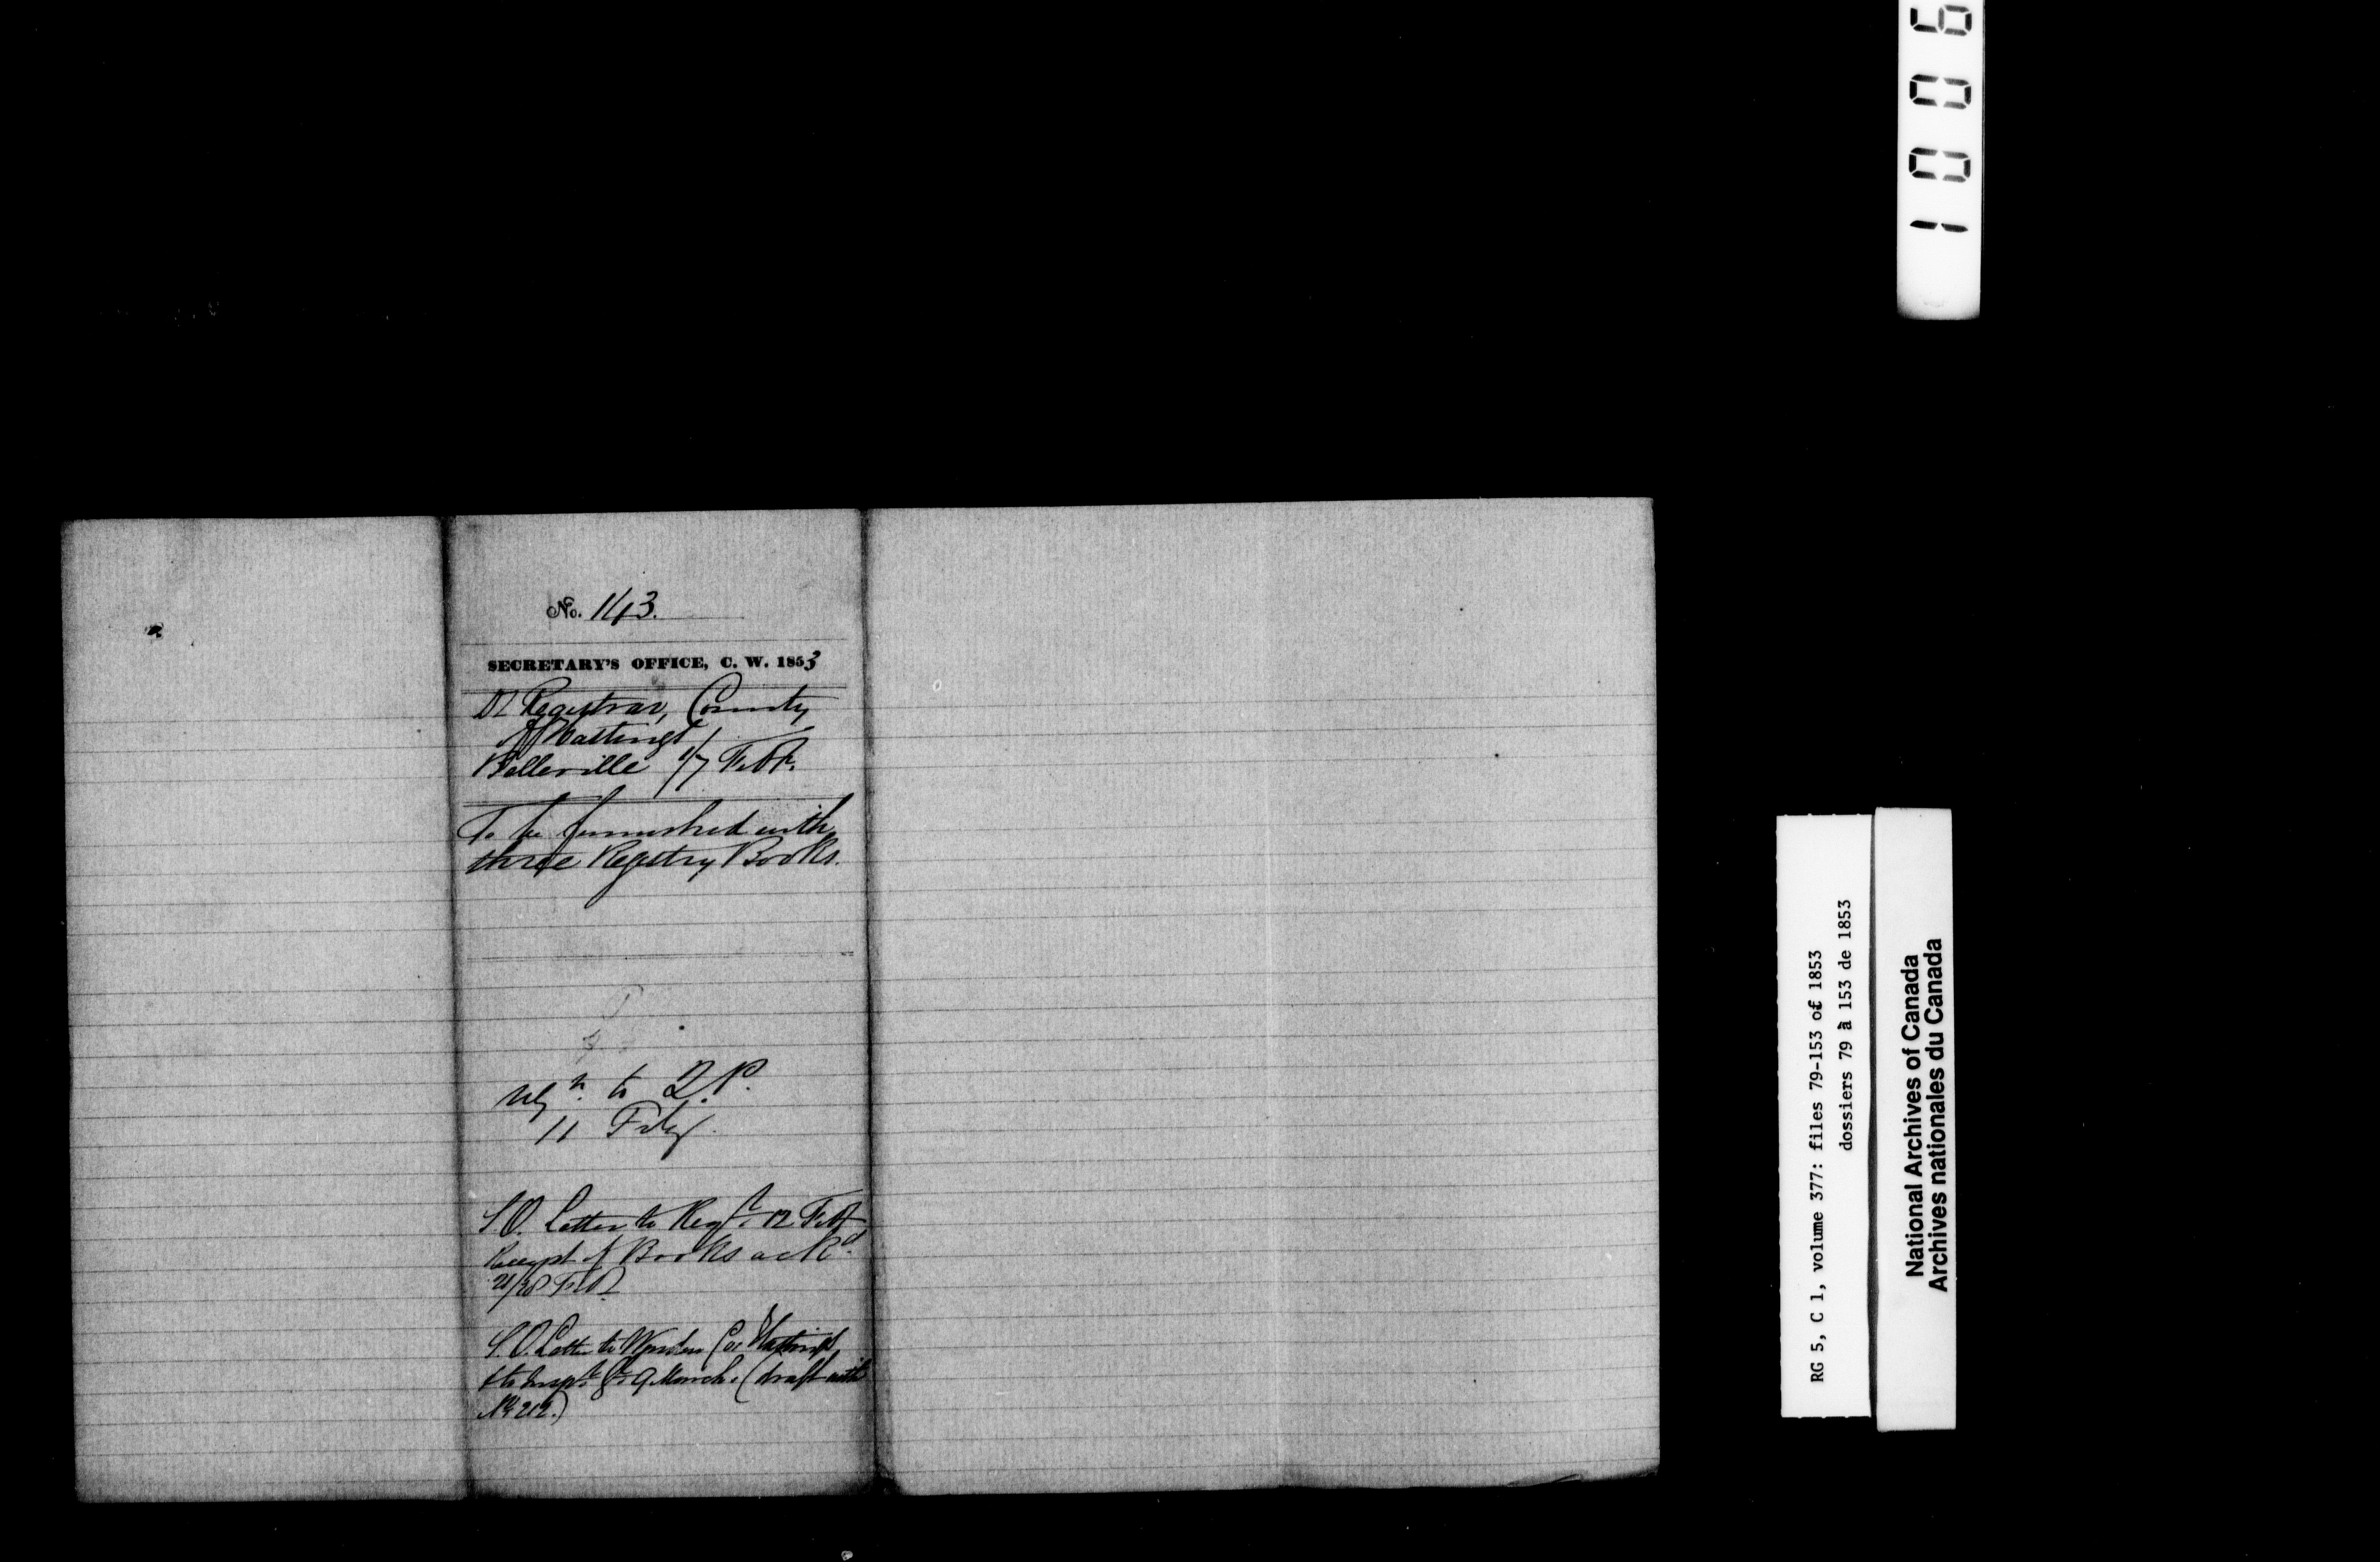 No. 143.
SECRETARY'S OFFICE, C. W. 1853
Registrar, County
of Hastings
Belleville 5/7 Feb.
To be furnished with
three Registry Books.
to Q.P.
11 Feby.
S.O. Letter to Regr. 12 Feb
Receipt of Books ackd.
Feb
S.O. Letter to Warden Co. Hastings
& to Insp. 9 March. (draft with
No. 212.)
1006
RG 5, C 1, volume 377: files 79-153 of 1853
dossiers 79 à 153 de 1853
National Archives of Canada
Archives nationales du Canada